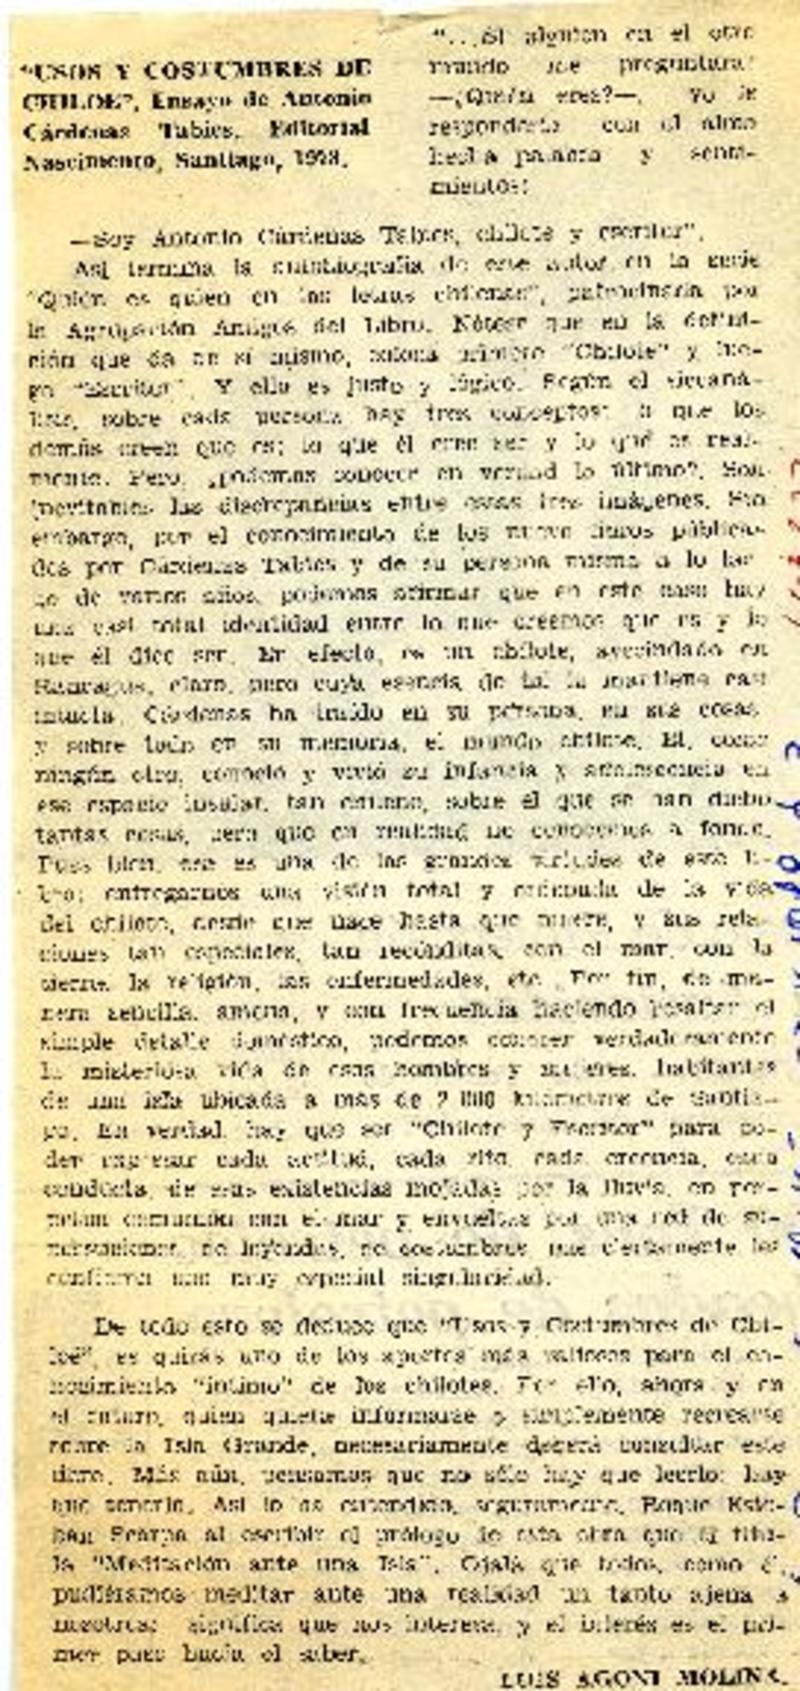 "USOS Y COSTUMBRES DE
CHILOE", Ensayo de Antonio
Cárdenas Tabies. Editorial
Nascimento, Santiago, 1978.
"...Si alguien en el otro
mundo me preguntara:
—¿Quién eres?—, yo le
respondería con el alma
hecha palabra y senti-
mientos:
—Soy Antonio Cárdenas Tabies, chilote y escritor".
Así termina la autobiografía de este autor en la serie
"Quién es quien en las letras chilenas", patrocinada por
la Agrupación Amigos del Libro. Nótese que en la defini-
ción que da de sí mismo, coloca primero "Chilote" y lue-
go "Escritor". Y ello es justo y lógico. Según el sicoaná-
lisis, sobre cada persona hay tres conceptos: lo que los
demás creen que es; lo que él cree ser y lo que es real-
mente. Pero, ¿podemos conocer en verdad lo último?. Son
inevitables las discrepancias entre esas tres imágenes. Sin
embargo, por el conocimiento de los nueve libros publica-
dos por Cárdenas Tabies y de su persona misma a lo lar-
go de varios años, podemos afirmar que en este caso hay
una casi total identidad entre lo que creemos que es y lo
que él dice ser. En efecto, es un chilote, avecindado en
Rancagua, claro, pero cuya esencia de tal la mantiene casi
intacta. Cárdenas ha traído en su persona, en sus cosas
y sobre todo en su memoria, el mundo chilote. El, como
ningún otro, conoció y vivió su infancia y adolescencia en
ese espacio insular, tan chileno, sobre el que se han dicho
tantas cosas, pero que en realidad no conocemos a fondo.
Pues bien, ese es una de las grandes virtudes de este li-
bro: entregarnos una visión total y ordenada de la vida
del chilote, desde que nace hasta que muere, y sus rela-
ciones tan especiales, tan recónditas, con el mar, con la
tierra, la religión, las enfermedades, etc. Por fin, de ma-
nera sencilla, amena, y con frecuencia haciendo resaltar el
simple detalle doméstico, podemos conocer verdaderamente
la misteriosa vida de esos hombres y mujeres, habitantes
de una isla ubicada a más de 2.000 kilómetros de Santia-
go. En verdad, hay que ser "Chilote y Escritor" para po-
der expresar cada actitud, cada rito, cada creencia, cada
conducta, de esas existencias mojadas por la lluvia, en per-
petua comunión con el mar y envueltas por una red de su-
persticiones, de leyendas, de costumbres, que ciertamente les
confieren una muy especial singularidad.
De todo esto se deduce que "Usos y Costumbres de Chi-
loé", es quizás uno de los aportes más valiosos para el co-
nocimiento "íntimo" de los chilotes. Por ello, ahora y en
el futuro, quien quiera informarse o simplemente recrearse
sobre la Isla Grande, necesariamente deberá consultar este
libro. Más aún, pensamos que no sólo hay que leerlo: hay
que tenerlo. Así lo ha entendido, seguramente, Roque Este-
ban Scarpa al escribir el prólogo de esta obra que él titu-
la "Meditación ante una Isla". Ojalá que todos, como él,
pudiéramos meditar ante una realidad un tanto ajena a
nosotros: significa que nos interesa, y el interés es el pri-
mer paso hacia el saber.
LUIS AGONI MOLINA.